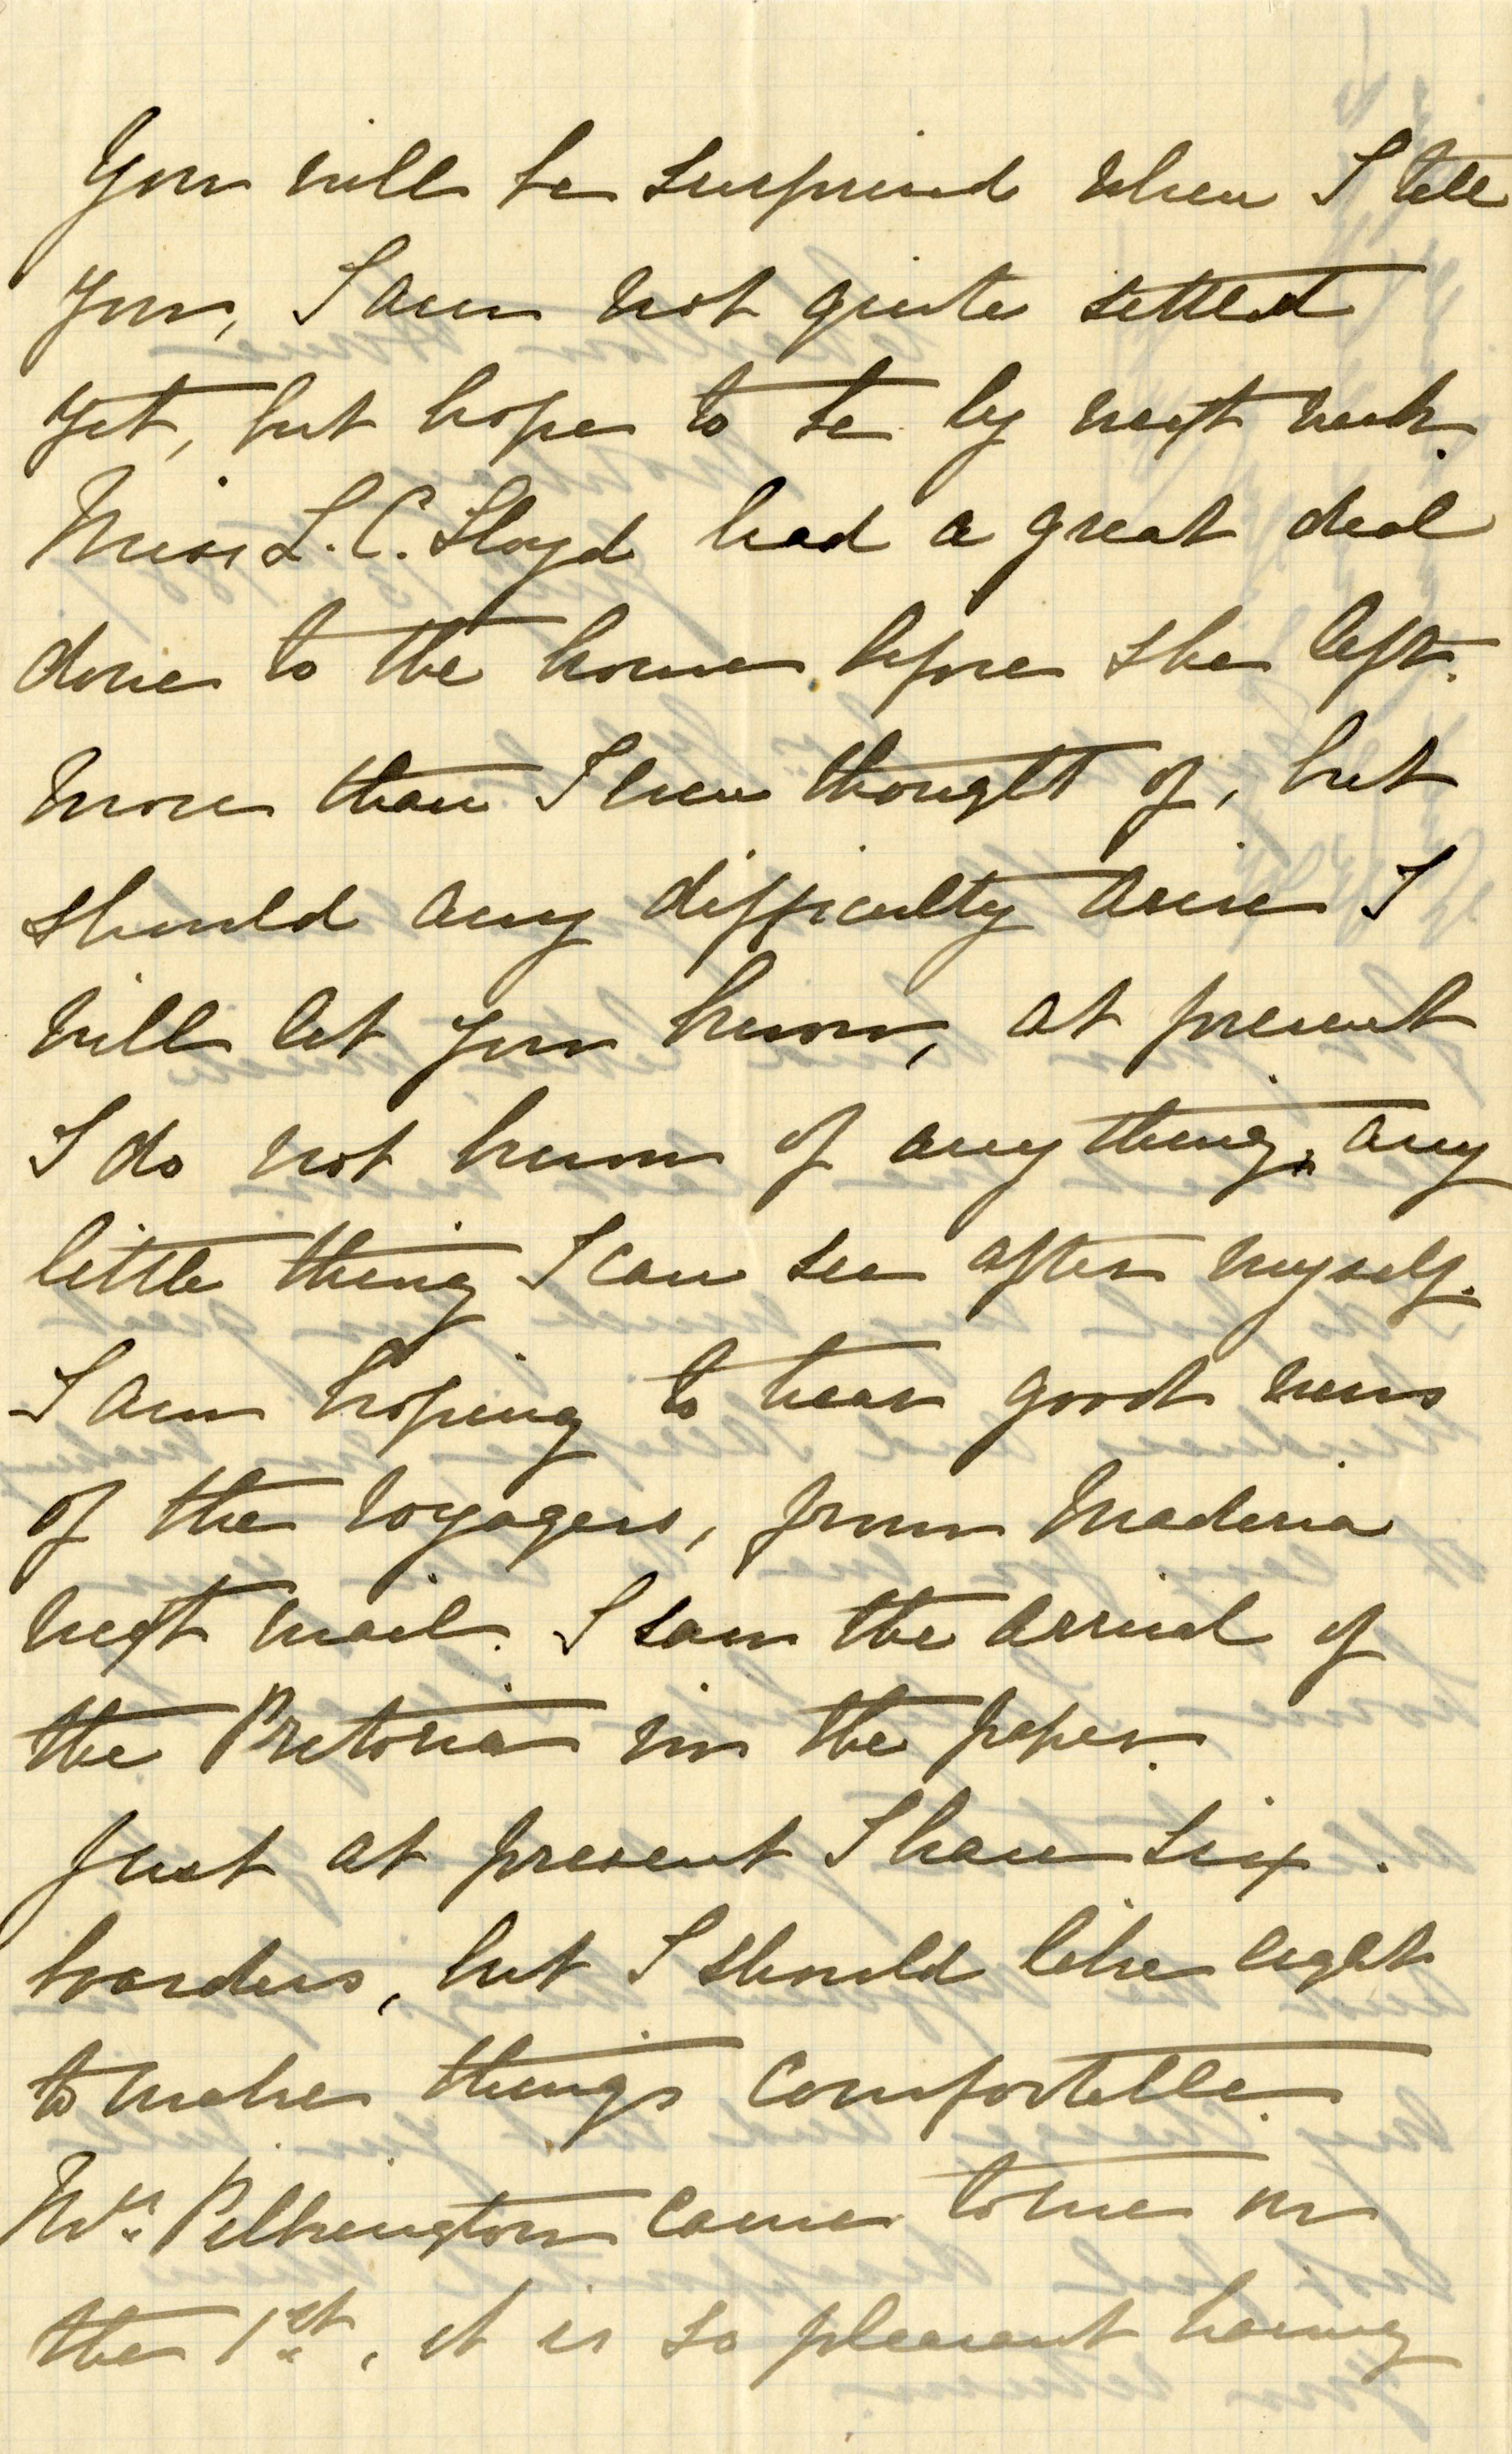 You will be surprised when I tell
you, I am not quite settled
yet, but hope to be by next week.
Miss L. C. Lloyd had a great deal
done to the house before she left.
more than I ever thought of, but
should any difficulty arise I
will let you know, at present
I do not know of any thing, any
little thing I can see after myself.
I am hoping to hear good news
of the voyagers, from Maderia
next mail. I saw the arrival of
the Pretoria in the paper.
Just at present I have six
boarders, but I should like eight
to make things comfortable.
Mrs. Pilkington came to me on
the 1st, it is so pleasant having